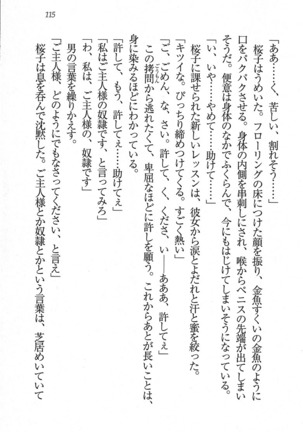 115
「ああ……く、苦しい、割れそう……」
桜子はうめいた。フローリングの床につけた顔を振り、金魚すくいの金魚のように
口をパクパクさせる。身体の内側を串刺しにされ、喉からペニスの先端が出てしまい
そうだ。便意は身体のなかでふくらんで、今にもはじけてしまいそうになっている。
「い、いや……やめて……助けて……」
桜子に課せられた新しいレッスンは、彼女から涙とよだれと汗と蜜を絞った。
「キツイな。ぴっちり締めつけてくる。すごく熱い」
「ご、ごめん、な、さい。許して、く、ください――ああ、許してぇ」
この拷問から逃れたくて、卑屈なほどに許しを願う。これからあとが長いことは、
ごうもん
身に染みるほどにわかっている。
「許して、もう、許してぇ……助けてぇ」
「私は、ご主人様の奴隷です、と言ってみろ」
「わ、私は、ご主人様の、奴隷です」
男の言葉を繰りかえす。
「ご主人様、どのようにでもなさってください、と言え」
桜子は息を呑んで沈黙した。ご主人様とか奴隷とかという言葉は、芝居めいていて